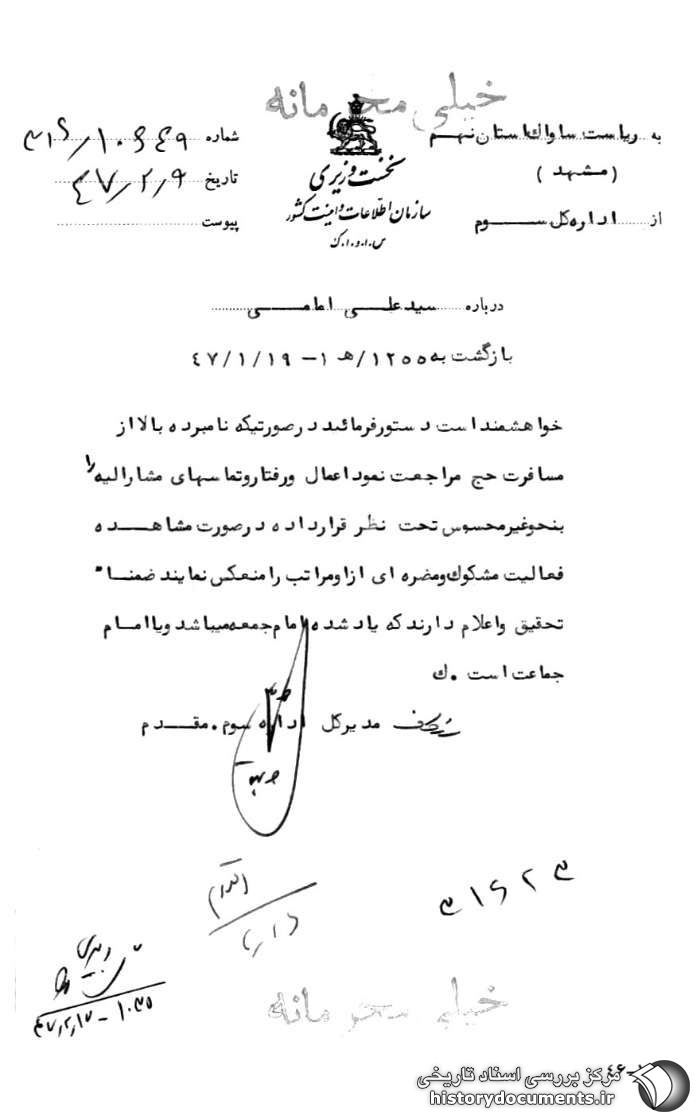 خیلی محرمانه
به ریاست ساواك استان نهم
(مشهد)
از اداره کل سوم
نخست وزیری
سازمان اطلاعات و امنیت کشور
س.ا.و.ا.ک
شماره
تاریخ ۴۷/۲/۹
پیوست
درباره سید علی امامی
بازگشت به ۱۲۵۵/هـ ۱ - ۴۷/۱/۱۹
خواهشمند است دستور فرمائید در صورتیکه نامبرده بالا از
مسافرت حج مراجعت نمود اعمال ورفتاروتماسهای مشارالیه را
بنحوغیرمحسوس تحت نظر قرارداده درصورت مشاهده
فعالیت مشکوك ومضره ای ازاومراتب رامنعکس نمایند ضمناً
تحقیق واعلام دارند که یاد شده امام جمعه میباشد ویاامام
جماعت است .ك
مدیرکل اداره سوم . مقدم
خیلی محرمانه
مرکز بررسی اسناد تاریخی
historydocuments.ir